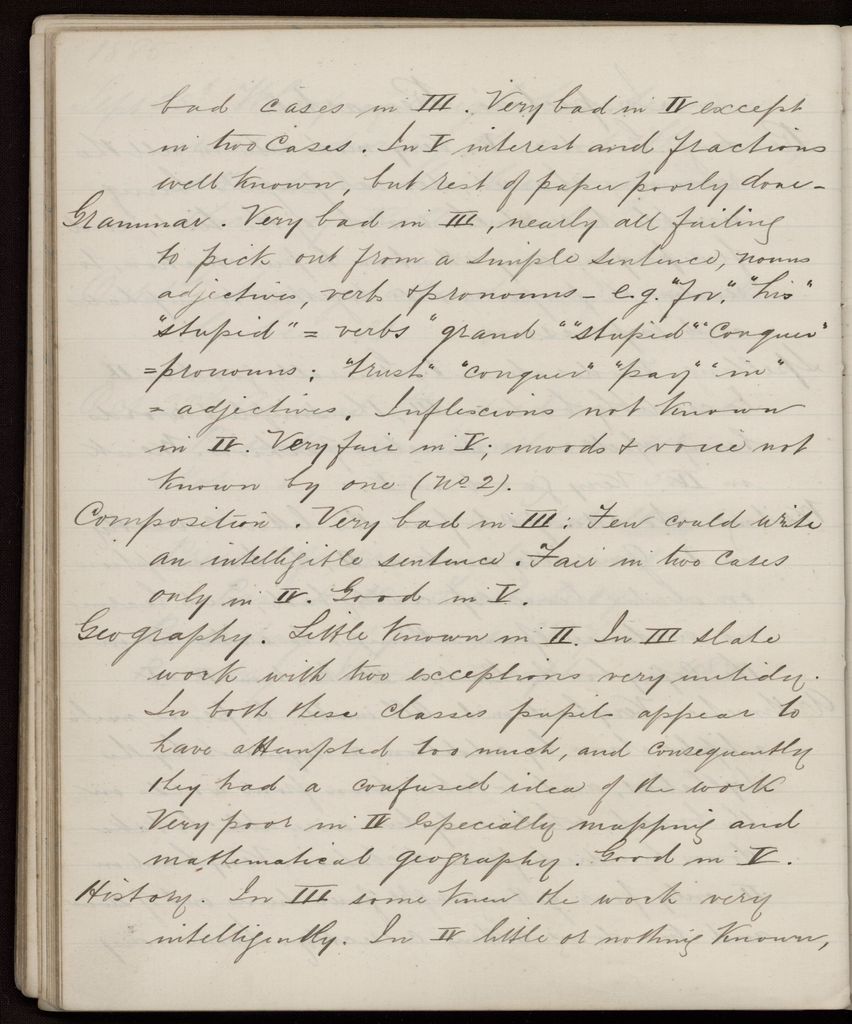 bad cases in III. Very bad in IV except
in two cases. In V interest and fractions
well known, but rest of paper poorly done –
Grammar. Very bad in III, nearly all failing
to pick out from a simple sentence, nouns
adjectives, verbs & pronouns – e.g. "for", "his"
"stupid" = verbs "grand" "stupid" "conquer"
= pronouns; "trust" "conquer" "pay" "in"
= adjectives. Inflexions not known
in IV. Very fair in V; moods & voice not
known by one (No 2).
Composition. Very bad in III: Few could write
an intelligible sentence. Fair in two cases
only in IV. Good in V.
Geography. Little known in II. In III slate
work with two exceptions very untidy.
In both these classes pupils appear to
have attempted too much, and consequently
they had a confused idea of the work
Very poor in IV especially mapping and
mathematical geography. Good in V.
History. In III some knew the work very
intelligently. In IV little or nothing known,